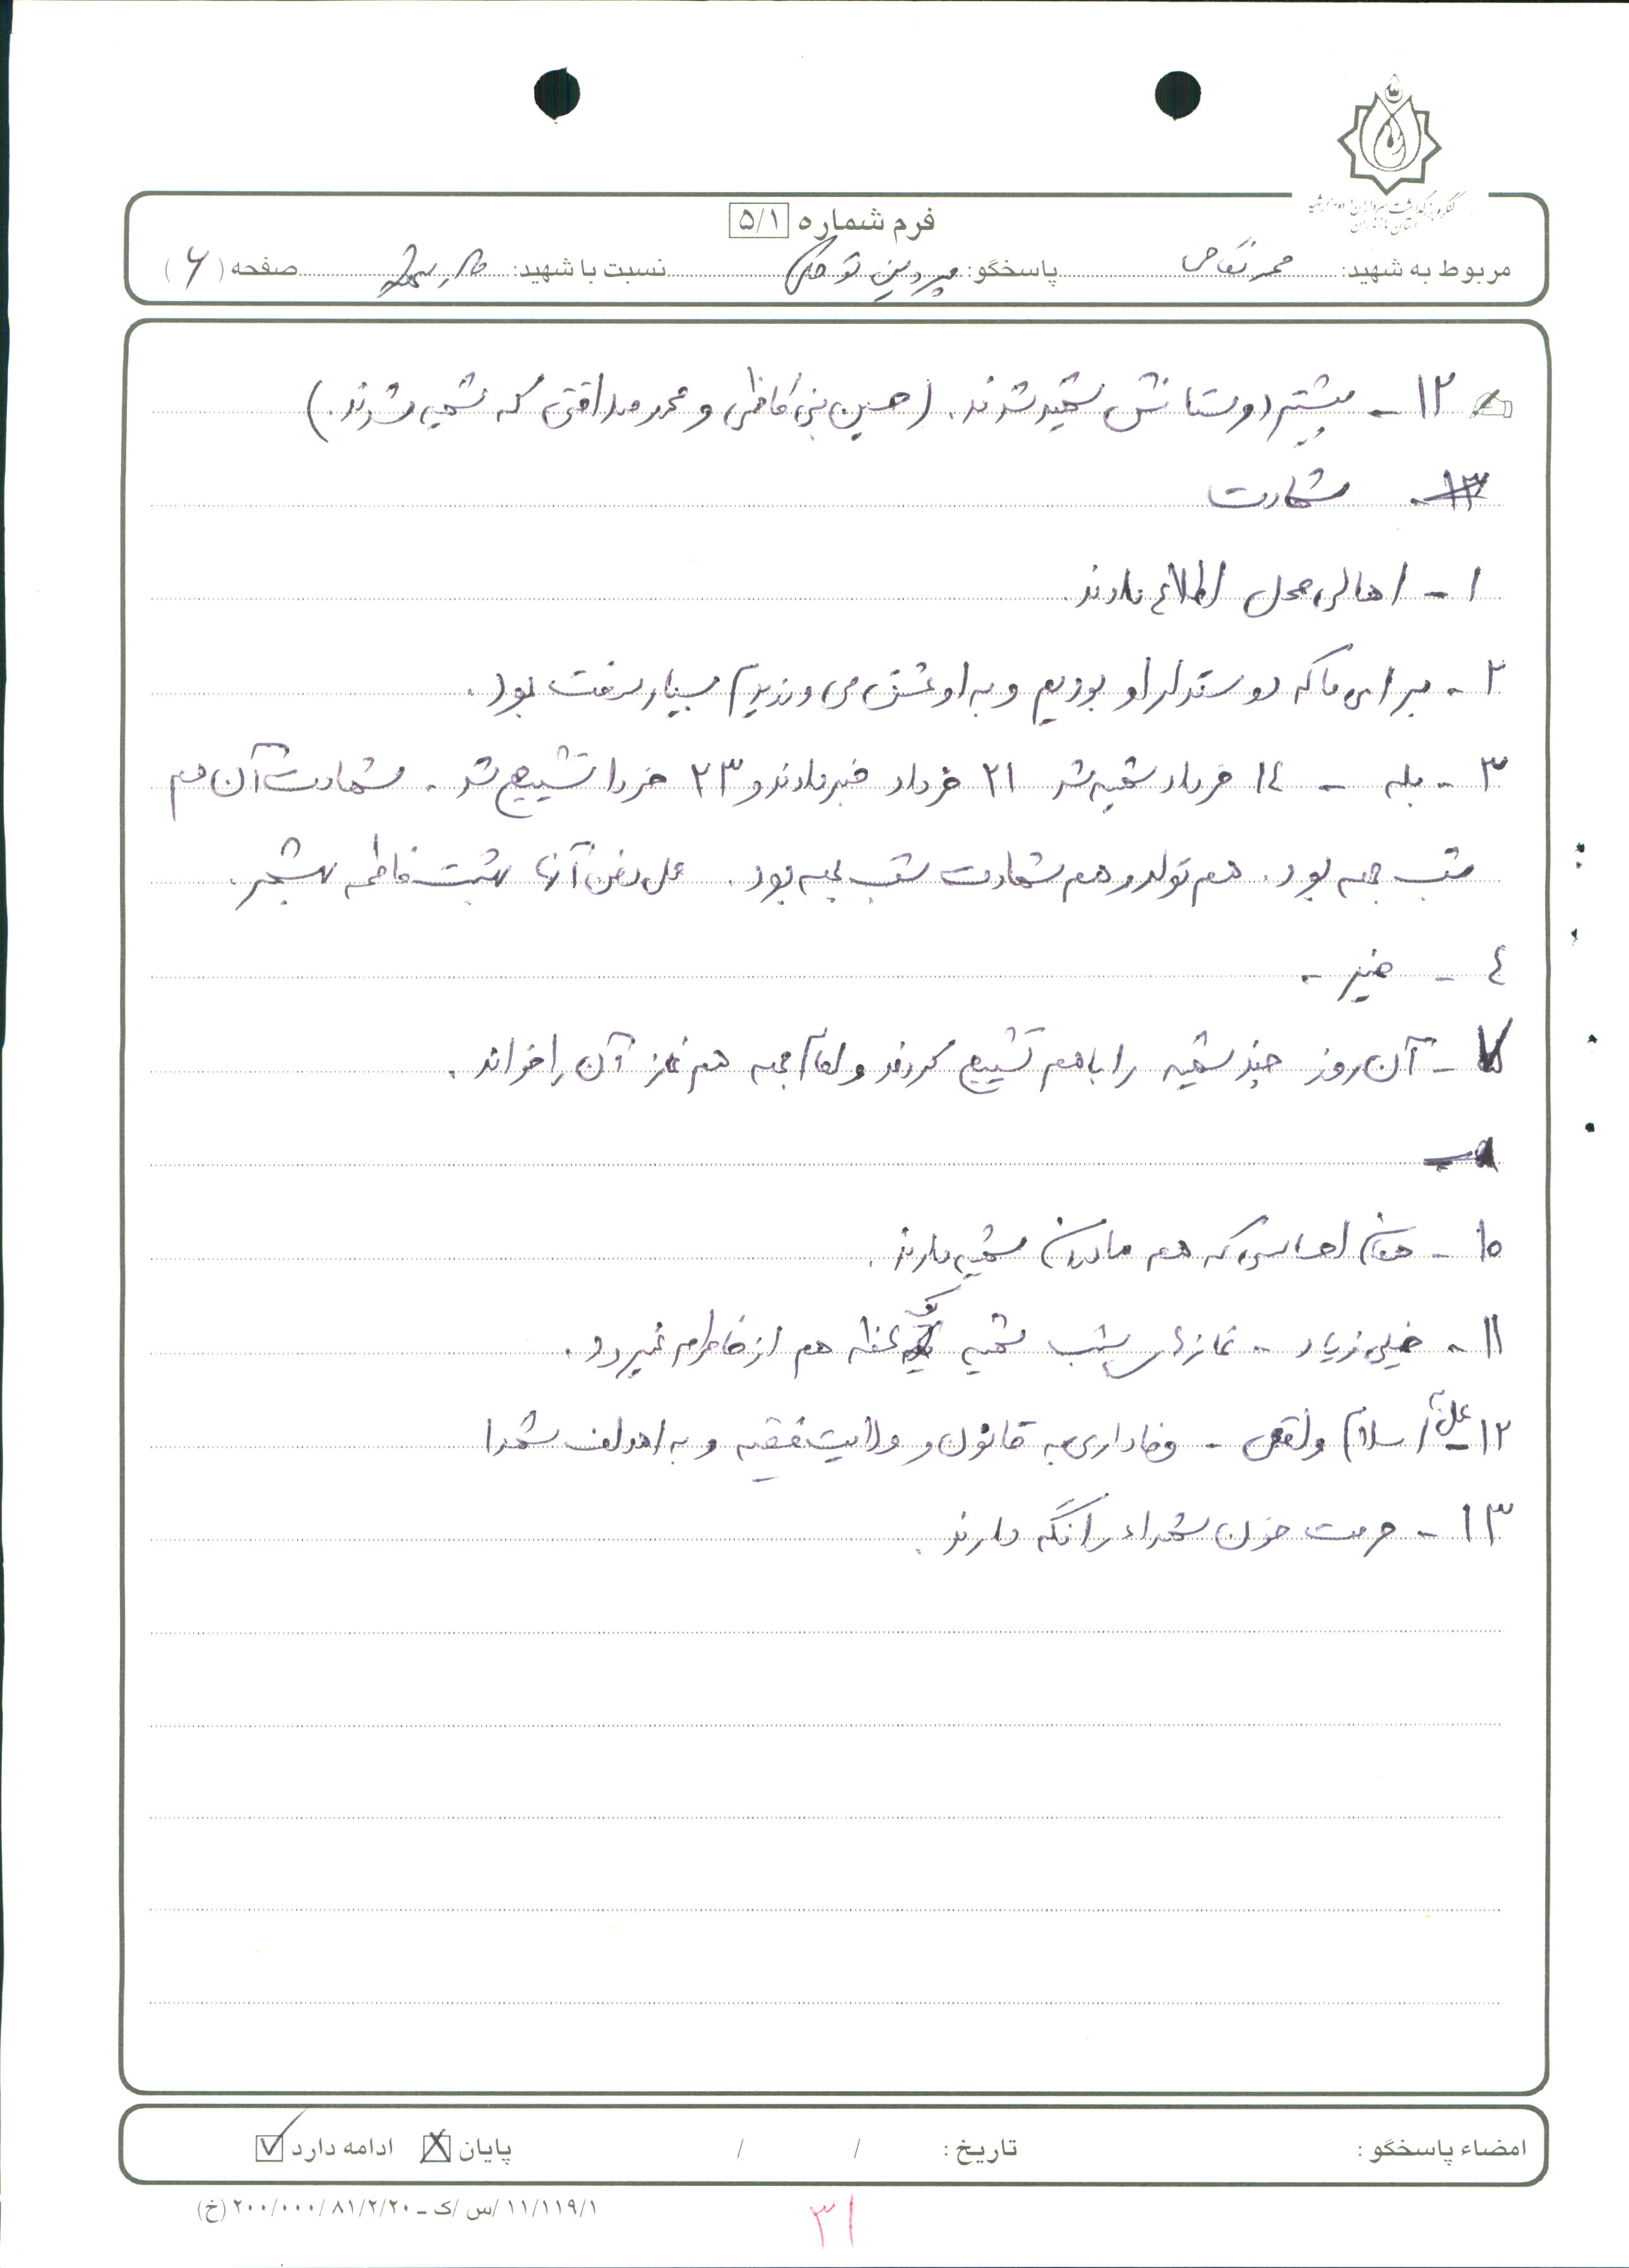 کنگره بزرگداشت سرداران و ... شهید
استان مازندران
فرم شماره ۵/۱
مربوط به شهید: محمد تقاص پاسخگو: پروین نسبت با شهید: صفحه (۶)
۱۲- بیشتر دوستانش شهید شدند. (حسین بنی کاظمی و محمد صداقتی که شهید شدند.)
۱۳- شهادت
۱- اهالی محل اطلاع دادند.
۲- برای ما که دوستدار او بودیم و به او عشق می ورزیدیم بسیار سخت بود.
۳- بله - ۱٤ خرداد شهید شد ۲۱ خرداد خبر دادند و ۲۳ خرداد تشییع شد. شهادت آن هم
شب جمعه بود. هم تولد و هم شهادت شب جمعه بود. محل دفن آنها بهشت فاطمه بهشهر.
٤- خیر-
۷- آن روز چند شهید را با هم تشییع کردند و امام جمعه هم نماز آن را خواند.
۸-
۱۰- همان احساسی که همه مادران شهید دارند.
۱۱- خیلی زیاد - نمازهای شب شهید یک لحظه هم از خاطرم نمیرود.
۱۲- اسلام واقعی - وفاداری به قانون و ولایت فقیه و به اهداف شهدا
۱۳- حرمت خون شهداء را نگه دارند.
امضاء پاسخگو: تاریخ: / / پایان ادامه دارد
۱۱/۱۱۹/۱ /س /ک ـ ۲۰۰/۰۰۰/۸۱/۲/۲۰ (خ)
۳۱